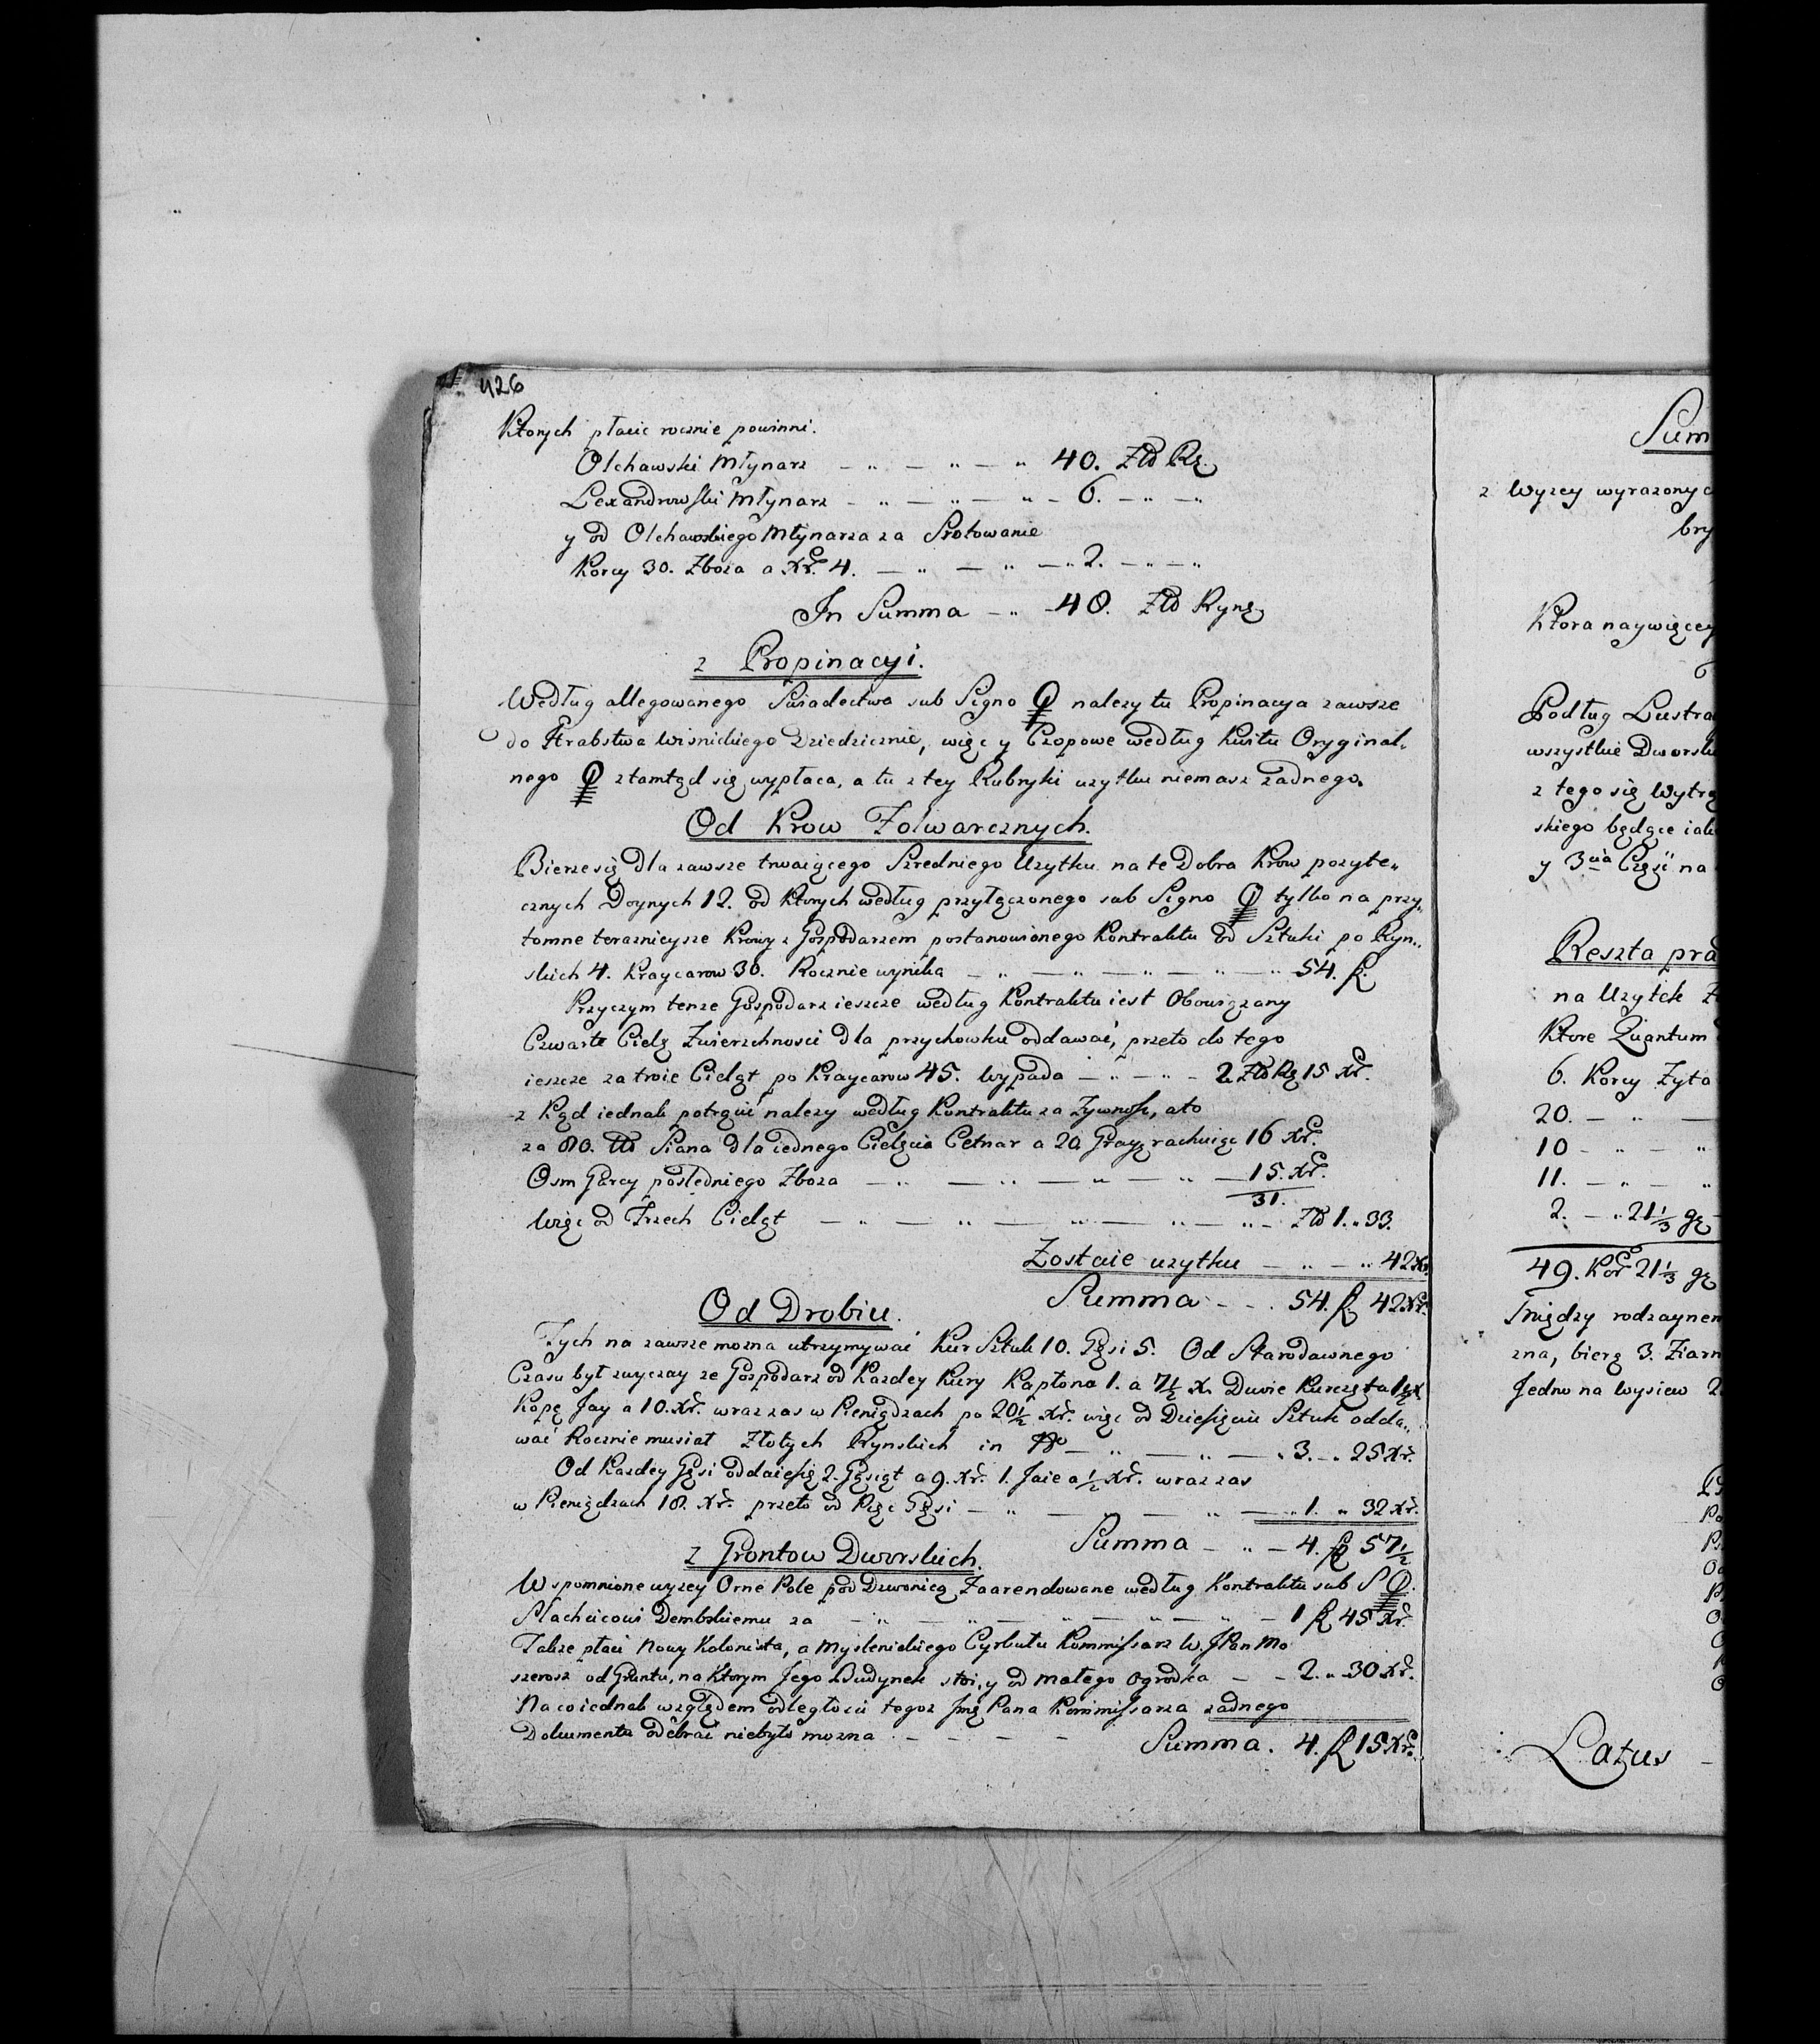 426
Ktorych płacic rocznie powinni.
Olchawski Młynarz — „ — „ — „ 40. Złd Rę
Lexandrowski Młynarz — „ — „ — „ — 6. — „ — „
y od Olchawskiego Młynarza za Srotowanie
Korcy 30. Zboza a Xr. 4. — „ — „ — „ 2. — „ — „
In Summa — „ — 48. Złd Rynę
z Propinacyi.
Według allegowanego Swiadectwa sub Signo należy tu Propinacya zawsze
do Hrabstwa Wisnickiego Dziedzicznie, więc y Czopowe według Kwitu Oryginal„
nego ztamtąd się wypłaca, a tu z tey Rubryki uzytku niemasz żadnego.
Od Krow Folwarcznych.
Bierze się dla zawsze trwaiącego Szredniego Uzytku na te Dobra Krow pozyte„
cznych Doynych 12. od Ktorych według przyłączonego sub Signo tylko na przy„
tomne teraznieysze Krowy z Gospodarzem postanowionego Kontraktu od Sztuki po Ryn„
skich 4. Kraycarow 30. Rocznie wynika — „ — „ — „ — „ „ 54. f
Przyczym tenze Gospodarz ieszcze według Kontraktu iest Obowiązany
Czwarte Cielę Zwierzchnosci dla przychowku oddawać, przeto do tego
ieszcze za troie Cieląt po Kraycarow 45. wypada — „ — „ — 2 Złd Rę 15 Xr.
z Kąd iednak potrącić należy według Kontraktu za Zywnosc, a to
za 80. ℔ Siana dla iednego Cielęcia Cetnar a 20 Gray, rachuiąc 16 Xr.
Osm Garcy posledniego Zboza — „ — „ — „ — „ — 15. Xr.
31.
Więc od Trzech Cieląt — „ — „ — „ — „ — „ — Złd 1. „ 33.
Zostaie uzytku — „ — „ 42 Xr.
Summa — — . 54. f 42 Xr.
Od Drobiu.
Tych na zawsze mozna utrzymywać Kur Sztuk 10. Gęsi 5. Od Starodawnego
Czasu był zwyczay ze Gospodarz od Kazdey Kury Kapłona 1. a 7½ X. Dwie Kurczęta
Kopę Jay a 10. Xr. wraz zas w Pieniądzach po 20½ Xr. więc od Dziesięciu Sztuk odda„
wać Rocznie musiał Złotych Rynskich in — „ — „ — „ 3. „ 25 Xr.
Od Kazdey Gęsi oddaie się 2. Gęsiąt a 9. Xr. 1. Jaie a ½ Xr. wraz zas
w Pieniądzach 18. Xr. przeto od Pięc Gęsi — „ — — „ — „ 1. „ 32 Xr.
Summa — „ — 4. f 57½
z Grontow Dworskich.
Wspomnione wyzey Orne Pole pod Dzwonicą Zaarendowane według Kontraktu sub S
Slachcicowi Dembskiemu za — „ — „ — „ — „ — „ — 1 f 45 Xr.
Takze płaci Nowy Kolonista, a Myslenickiego Cyrkułu Kommissarz W. JPan Mo
szerosz od Gruntu, na Ktorym Jego Budynek stoi, y od małego ogrodka — — 2. „ 30 Xr.
Na co iednak względem odległosci tegoz Jmę Pana Kommissarza zadnego
Dokumentu odebrać niebyło mozna . — — — — Summa. 4. f 15 Xr.
Sum
z Wyzey wyrazonyc
bry
Ktora naywięcey
Podług Lustra
wszystkie Dworsk
z tego się Wytrą
skiego będące iak
y 3cia Częsc na
Reszta pra
na Uzytek
Ktore Quantum
6. Korcy Zyta
20. — „ —
10 — „ — „
11. — „ — „
2. — „ 21⅓ gę
49. Kor 21⅓ gę
Między rodzaynem
zna, biere 3. Ziarn
Jedno na wysiew 2
Latus —